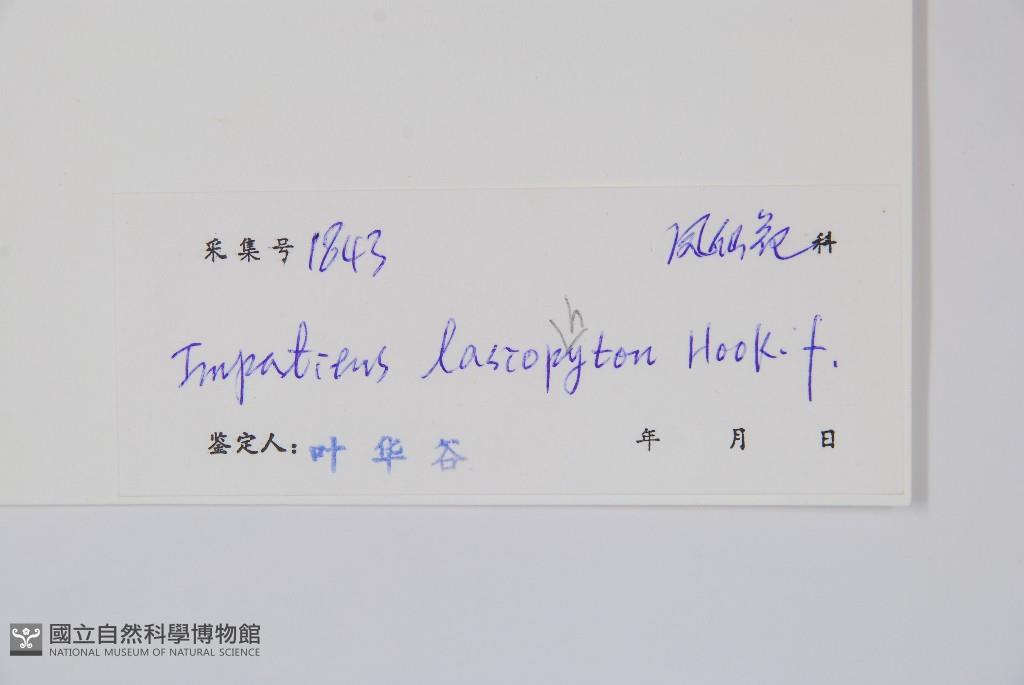 采集号 1843 凤仙花科
h
Impatiens lasiopyton Hook. f.
鉴定人: 叶华谷 年 月 日
國立自然科學博物館
NATIONAL MUSEUM OF NATURAL SCIENCE